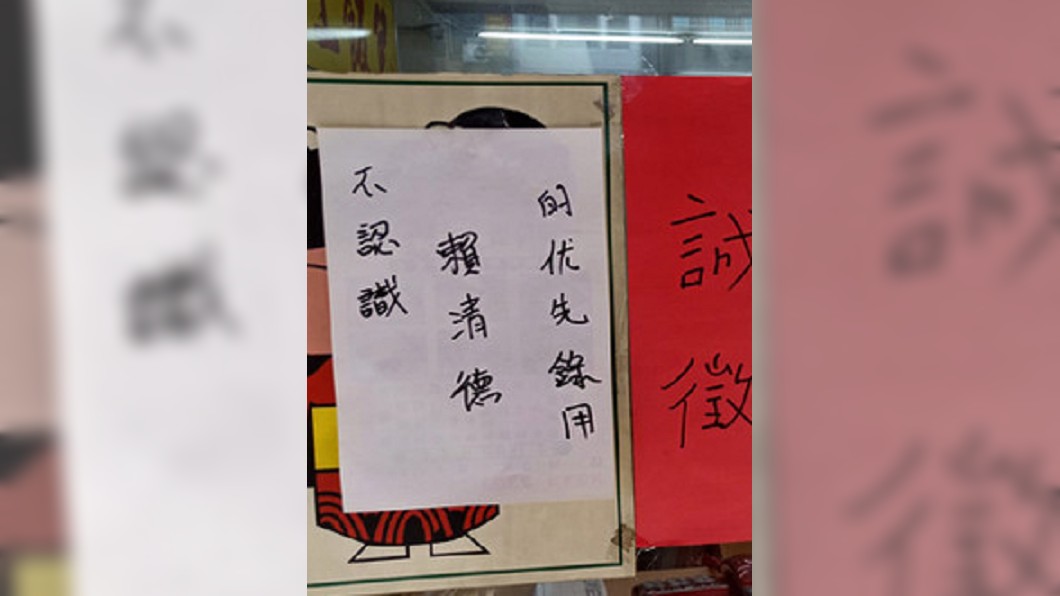 不認識
賴清德
的优先錄用
誠徵